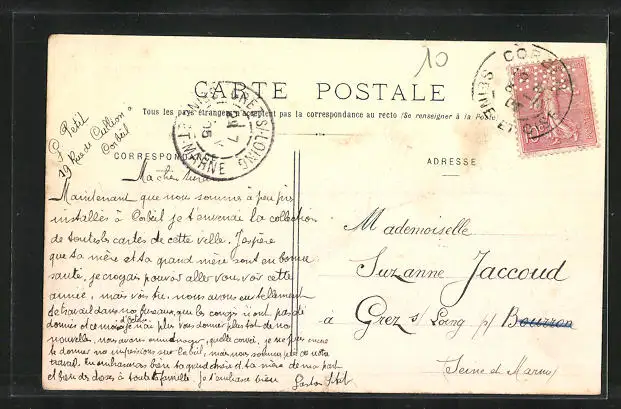 10
CARTE POSTALE
Tous les pays étrangers n'acceptent pas la correspondance au recto (Se renseigner à la Poste)
P. Petit
19 Rue de
Corbeil
CORRESPONDANCE
ADRESSE
GREZ-S/-LOING
ET-MARNE
SEINE ET OISE
Ma chère
Maintenant que nous sommes à peu près
installés à Corbeil je t'enverrai la collection
de toutes les cartes de cette ville. J'espère
que ta mère et ta grand mère sont en bonne
santé, je croyais pouvoir aller vous voir cette
année, mais vois tu, nous avons tellement
de travail dans nos bureaux, que les congés n'ont pas été
donnés et ce mois d'Octobre je n'ai plus vous donner plus tôt de nos
nouvelles, nous avons emménagé, quelle corvée, je ne puis encore
te donner mes impressions sur Corbeil, mais nous sommes de notre
travail. Tu embrasseras bien ta grand mère et ta mère de ma part
et bien des choses à toute ta famille. Je t'embrasse bien
Gaston Petit
Mademoiselle
Suzanne Jaccoud
à Grez s/ Loing p/ Bourron
(Seine et Marne)